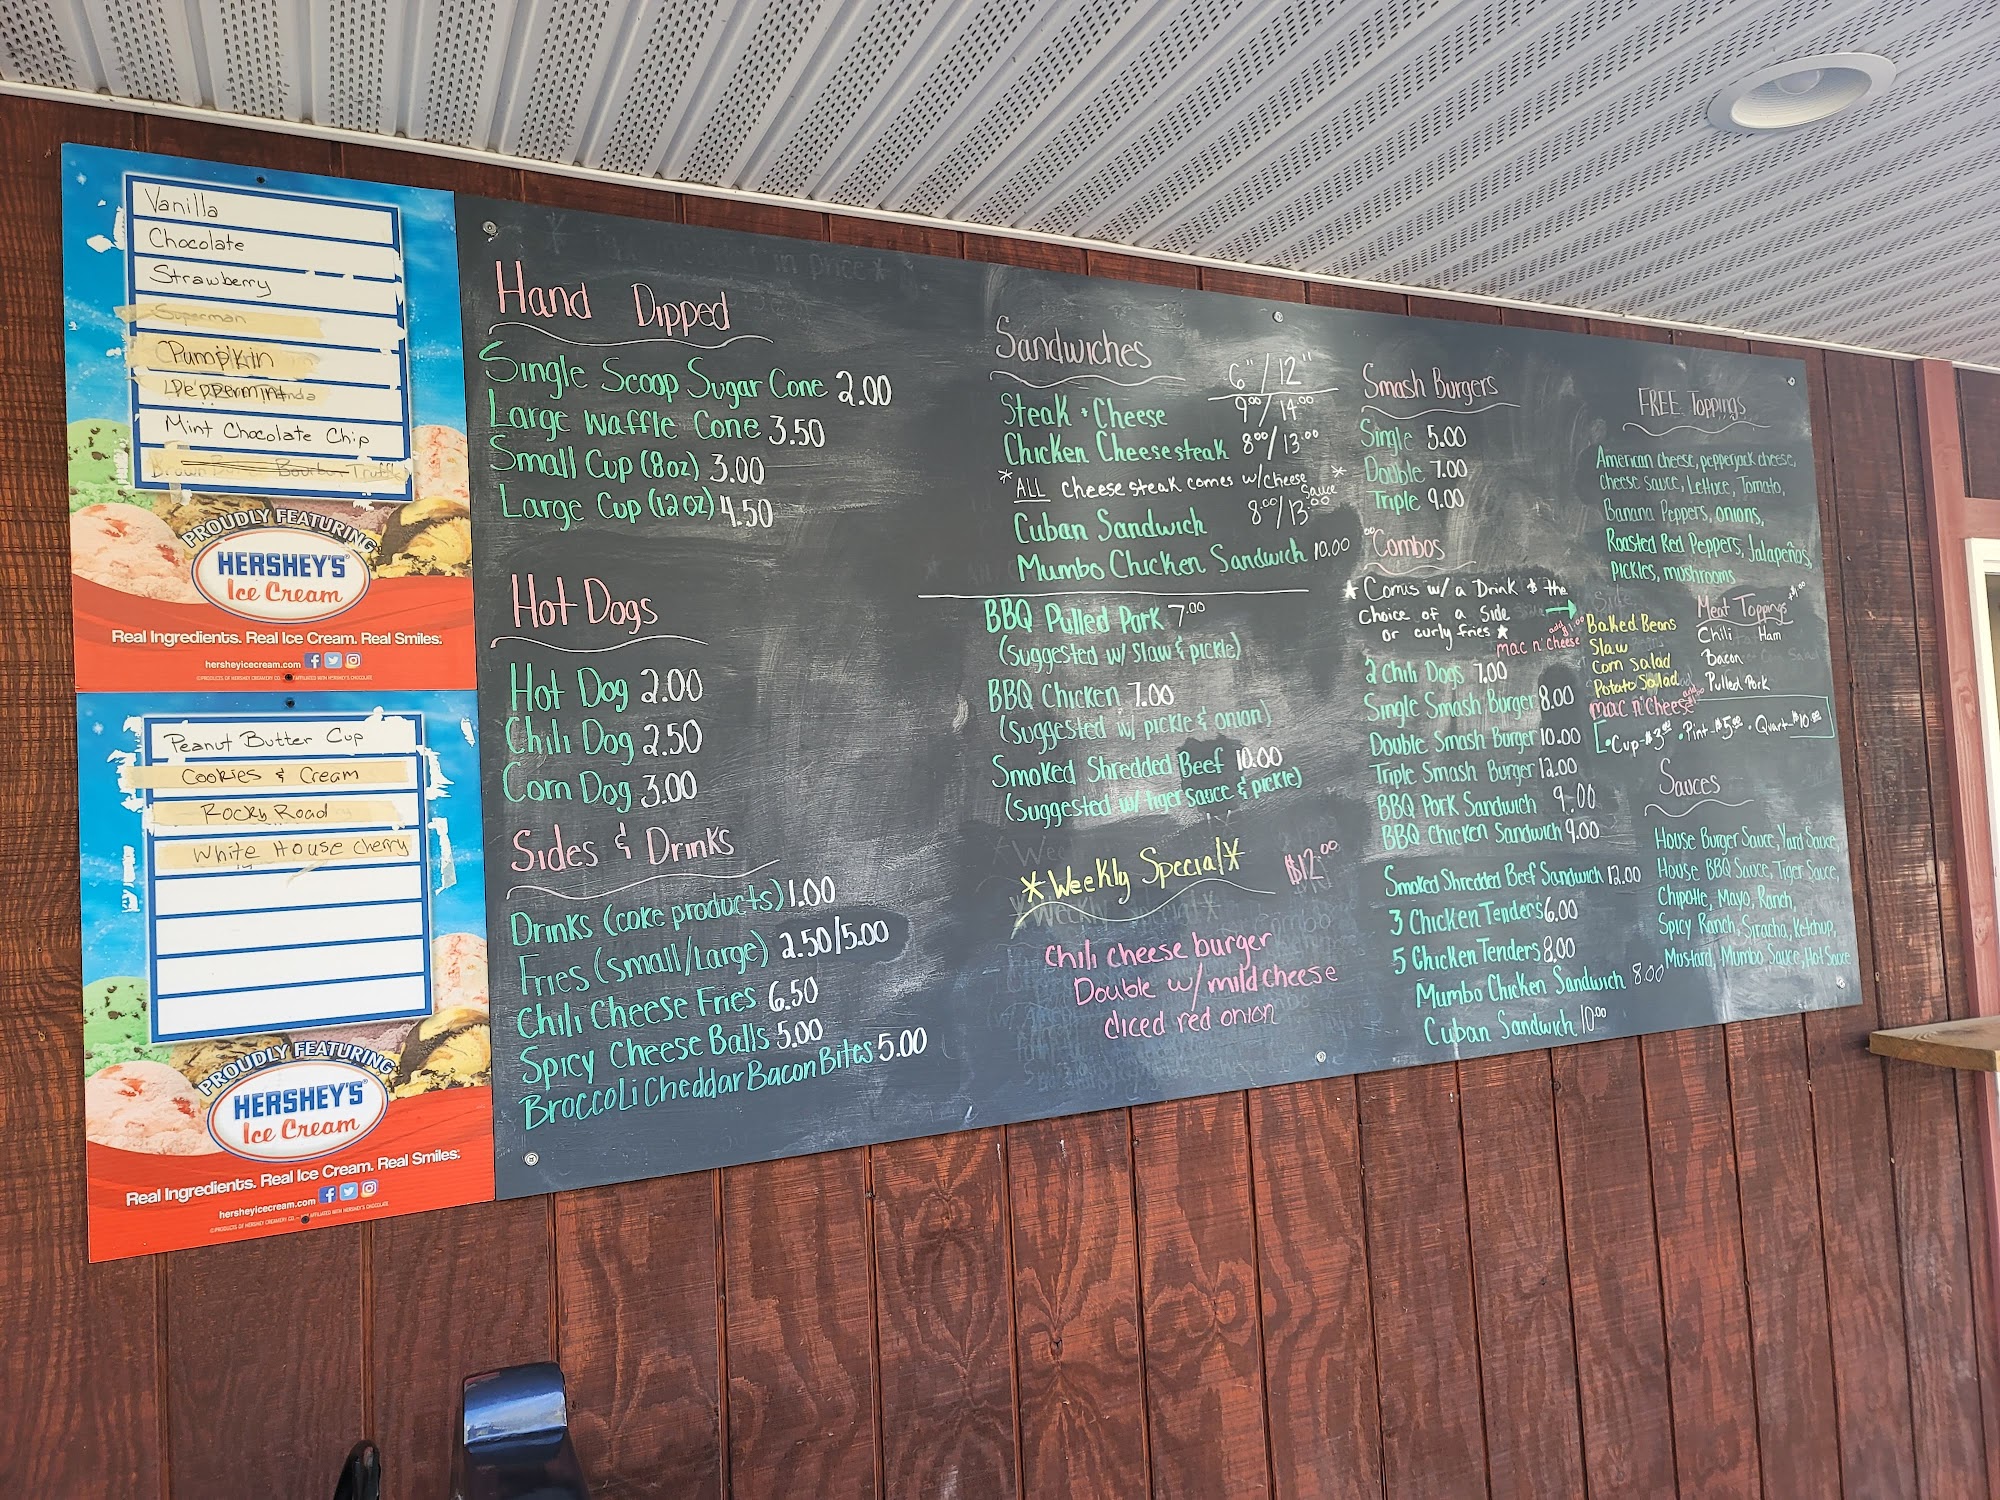 Vanilla
Chocolate
Strawberry
Superman
Pumpkin
Peppermint
Mint Chocolate Chip
Bourbon Truffle
PROUDLY FEATURING
HERSHEY'S
Ice Cream
Real Ingredients. Real Ice Cream. Real Smiles.
hersheyicecream.com
Peanut Butter Cup
Cookies & Cream
Rocky Road
White House Cherry
PROUDLY FEATURING
HERSHEY'S
Ice Cream
Real Ingredients. Real Ice Cream. Real Smiles.
hersheyicecream.com
Hand Dipped
Single Scoop Sugar Cone 2.00
Large Waffle Cone 3.50
Small Cup (8oz) 3.00
Large Cup (12oz) 4.50
Hot Dogs
Hot Dog 2.00
Chili Dog 2.50
Corn Dog 3.00
Sides & Drinks
Drinks (coke products) 1.00
Fries (small/Large) 2.50/5.00
Chili Cheese Fries 6.50
Spicy Cheese Balls 5.00
Broccoli Cheddar Bacon Bites 5.00
Sandwiches
6"/12"
Steak + Cheese 9.00/14.00
Chicken Cheesesteak 8.00/13.00
* ALL cheesesteak comes w/cheese sauce *
Cuban Sandwich 8.00/13.00
Mumbo Chicken Sandwich 10.00
BBQ Pulled Pork 7.00
(suggested w/ slaw & pickle)
BBQ Chicken 7.00
(suggested w/ pickle & onion)
Smoked Shredded Beef 10.00
(suggested w/ tiger sauce & pickle)
*Weekly Special* $12.00
Chili cheese burger
Double w/ mild cheese
diced red onion
Smash Burgers
Single 5.00
Double 7.00
Triple 9.00
Combos
* Coms w/ a Drink & the
choice of a side
or curly fries *
add $1.00
mac n' cheese
2 Chili Dogs 7.00
Single Smash Burger 8.00
Double Smash Burger 10.00
Triple Smash Burger 12.00
BBQ Pork Sandwich 9.00
BBQ Chicken Sandwich 9.00
Smoked Shredded Beef Sandwich 12.00
3 Chicken Tenders 6.00
5 Chicken Tenders 8.00
Mumbo Chicken Sandwich 8.00
Cuban Sandwich 10.00
FREE Toppings
American cheese, pepperjack cheese,
cheese sauce, Lettuce, Tomato,
Banana Peppers, onions,
Roasted Red Peppers, Jalapeños,
pickles, mushrooms
Baked Beans
Slaw
Corn Salad
Potato Salad
mac n' cheese
Meat Toppings $1.00
Chili Ham
Bacon
Pulled Pork
•Cup-$3.00 •Pint-$5.00 •Quart-$10.00
Sauces
House Burger Sauce, Yard Sauce,
House BBQ Sauce, Tiger Sauce,
Chipotle, Mayo, Ranch,
Spicy Ranch, Siracha, Ketchup,
Mustard, Mumbo Sauce, Hot Sauce